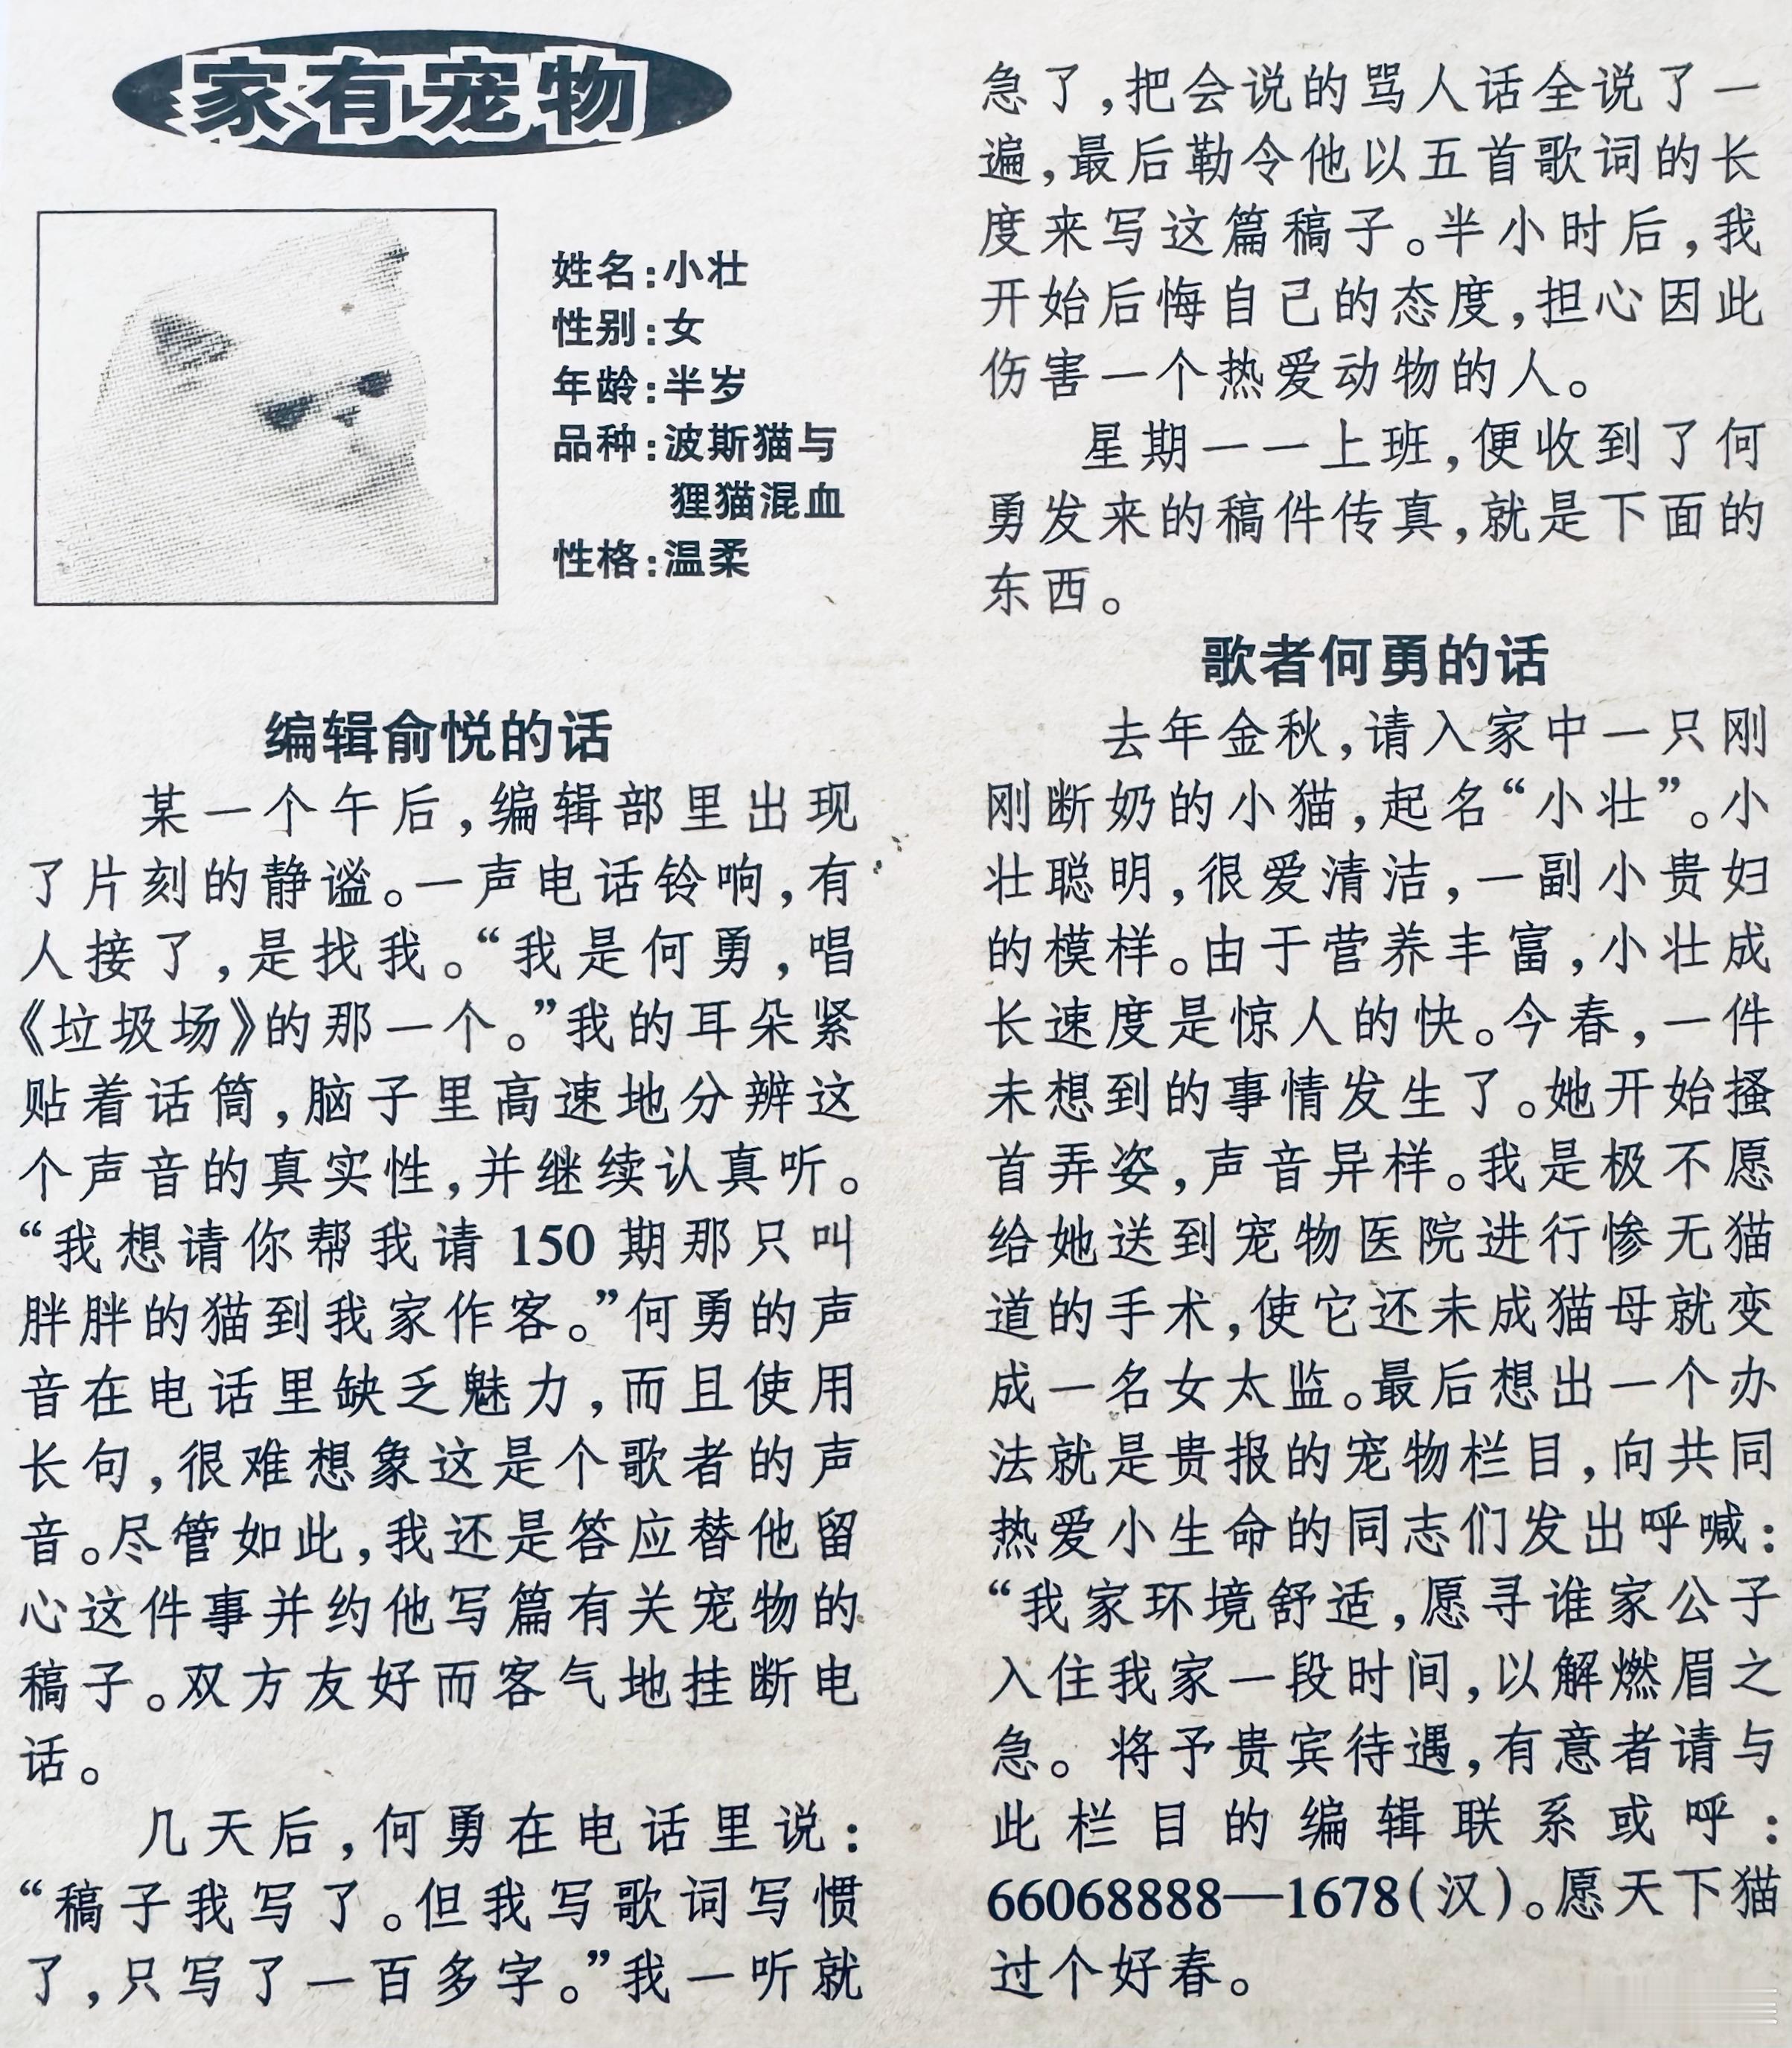 家有宠物
姓名:小壮
性别:女
年龄:半岁
品种:波斯猫与
狸猫混血
性格:温柔
编辑俞悦的话
某一个午后,编辑部里出现
了片刻的静谧。一声电话铃响,有
人接了,是找我。“我是何勇,唱
《垃圾场》的那一个。”我的耳朵紧
贴着话筒,脑子里高速地分辨这
个声音的真实性,并继续认真听。
“我想请你帮我请 150 期那只叫
胖胖的猫到我家作客。”何勇的声
音在电话里缺乏魅力,而且使用
长句,很难想象这是个歌者的声
音。尽管如此,我还是答应替他留
心这件事并约他写篇有关宠物的
稿子。双方友好而客气地挂断电
话。
几天后,何勇在电话里说:
“稿子我写了。但我写歌词写惯
了,只写了一百多字。”我一听就
急了,把会说的骂人话全说了一
遍,最后勒令他以五首歌词的长
度来写这篇稿子。半小时后,我
开始后悔自己的态度,担心因此
伤害一个热爱动物的人。
星期一一上班,便收到了何
勇发来的稿件传真,就是下面的
东西。
歌者何勇的话
去年金秋,请入家中一只刚
刚断奶的小猫,起名“小壮”。小
壮聪明,很爱清洁,一副小贵妇
的模样。由于营养丰富,小壮成
长速度是惊人的快。今春,一件
未想到的事情发生了。她开始搔
首弄姿,声音异样。我是极不愿
给她送到宠物医院进行惨无猫
道的手术,使它还未成猫母就变
成一名女太监。最后想出一个办
法就是贵报的宠物栏目,向共同
热爱小生命的同志们发出呼喊:
“我家环境舒适,愿寻谁家公子
入住我家一段时间,以解燃眉之
急。将予贵宾待遇,有意者请与
此栏目的编辑联系或呼:
66068888—1678(汉)。愿天下猫
过个好春。